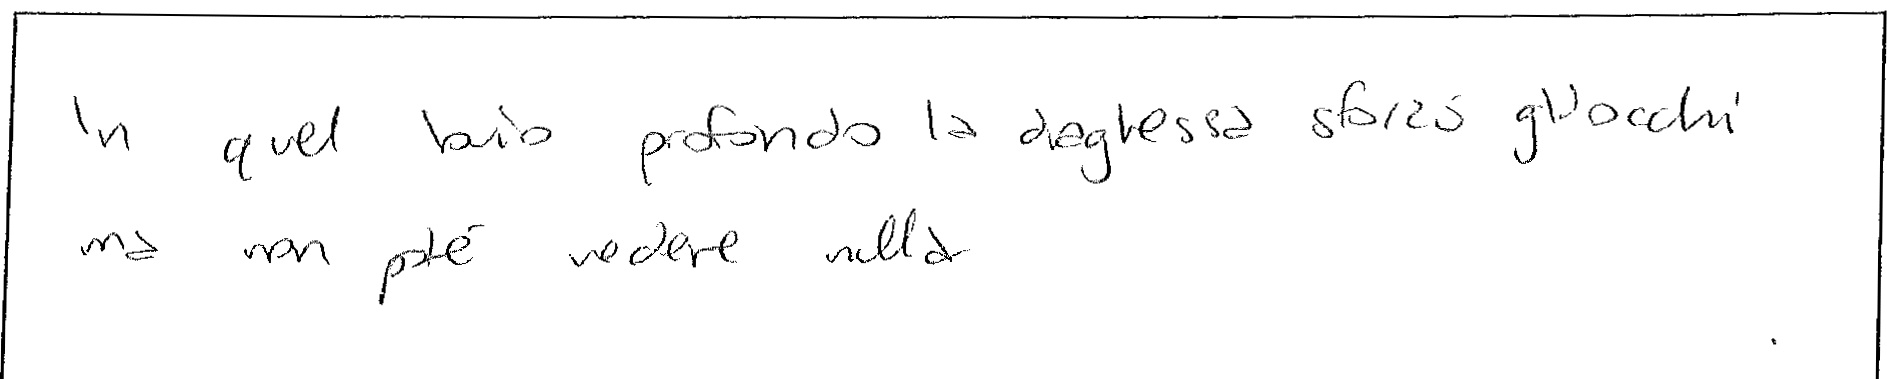 In quel buio profondo la draghessa sforzò gl'occhi
ma non poté vedere nulla